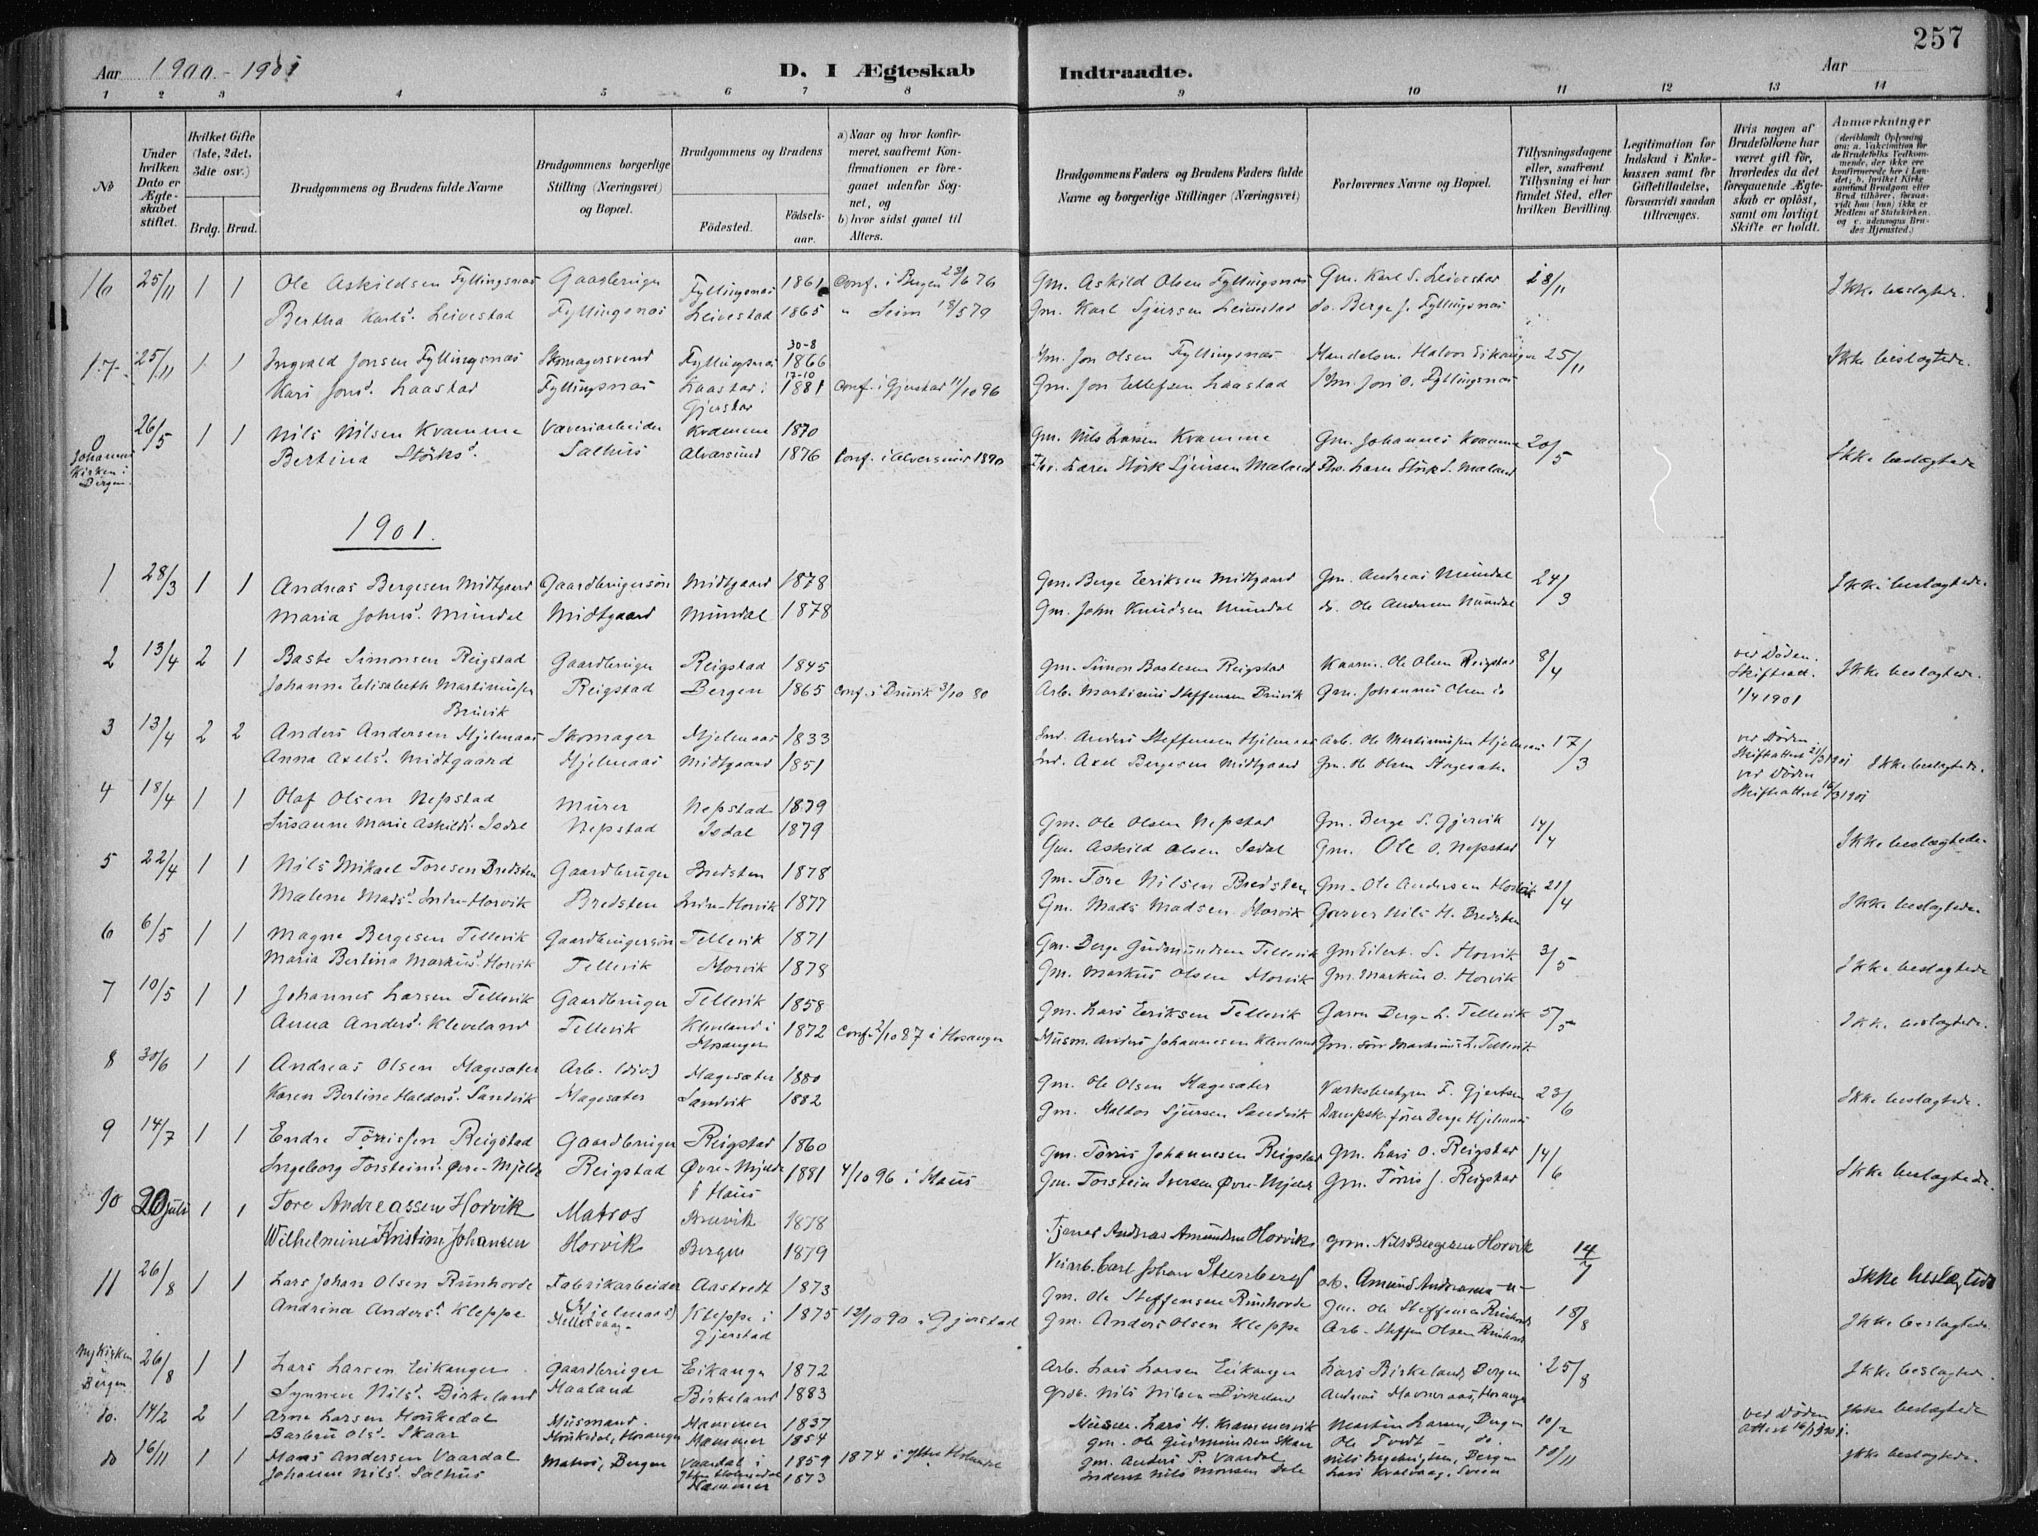 257
Aar 1900 - 1901
D. I Ægteskab Indtraadte.
Aar
1 2 3 4 5 6 7 8 9 10 11 12 13 14
No
Under hvilken Dato er Ægteskabet stiftet.
Hvilket Gifte (1ste, 2det, 3die osv.)
Brdg. Brud.
Brudgommens og Brudens fulde Navne
Brudgommens borgerlige Stilling (Næringsvei) og Bopæl.
Brudgommens og Brudens
Födested.
Födsels-aar.
a) Naar og hvor konfirmeret, saafremt Konfirmationen er foregaaet udenfor Sognet, og
b) hvor sidst gaaet til Alters.
Brudgommens Faders og Brudens Faders fulde Navne og borgerlige Stillinger (Næringsvei)
Forlovernes Navne og Bopæl.
Tillysningsdagene eller, saafremt Tillysning ei har fundet Sted, efter hvilken Bevilling.
Legitimation for Indskud i Enkekassen samt for Giftetilladelse, forsaavidt saadan tiltrænges.
Hvis nogen af Brudefolkene har været gift för, hvorledes da det foregaaende Ægteskab er oplöst, samt om lovligt Skifte er holdt.
Anmærkninger
(deriblandt Oplysning om: a. Vakcination for de Brudefolks Vedkommende, der ikke ere konfirmerede her i Landet; b. hvilket Kirkesamfund Brudgom eller Brud tilhörer, forsaavidt han (hun) ikke er Medlem af Statskirken, og c. udensogns Brudes Hjemsted.)
16 25/11 1 1 Ole Askildsen Fyllingsnæs Gaardbruger Fyllingsnæs 1861 Conf. i Bergen 23/6 76 Gm. Askild Olsen Fyllingsnæs Gm. Karl S. Leivestad 18/11 Ikke beslægtede.
Bertha Karlsd. Leivestad Fyllingsnæs Leivestad 1865 " Seim 18/5 79 Gm. Karl Sjursen Leivestad do. Berge J. Fyllingsnæs
17. 25/11 1 1 Ingvald Jonsen Fyllingsnæs Skomagersvend Fyllingsnæs 30-8 1866 Gm. Jon Olsen Fyllingsnæs Handelsm. Halvor Eikanger 25/11 Ikke beslægtede.
Kari Jonsd. Laastad Fyllingsnæs Laastad i Gjerstad 17-10 1881 Conf. i Gjerstad 11/10 96 Gm. Jon Ellefsen Laastad Gm. Jon O. Fyllingsnæs
0 26/5 1 1 Nils Nilsen Kvamme Væveriarbeider Kvamme 1870 Gm. Nils Larsen Kvamme Gm. Johannes Kvamme 20/5 Ikke beslægtede
Johannes Kirken i Bergen. Bertina Störksd. Salhus Alversund 1876 Conf. i Alversund 1890 Lars Störk Sjursen Mæland Lars Störk S. Mæland
1901.
1 28/3 1 1 Andreas Bergesen Midtgaard Gaardbrugersøn Midtgaard 1878 Gm. Berge Eriksen Midtgaard Gm. Andreas Mundal 24/3 Ikke beslægtede.
Maria Johnsd. Mundal Midtgaard Mundal 1878 Gm. John Knudsen Mundal do. Ole Andersen Mundal
2 13/4 2 1 Baste Simonsen Reigstad Gaardbruger Reigstad 1845 Gm. Simon Bastesen Reigstad Kaarm. Ole Olsen Reigstad 8/4 ved Döden. Skifteatt. 1/4 1901 Ikke beslægtede.
Johanne Elisabeth Martinusen Bruvik Reigstad Bergen 1865 Conf. i Bruvik 3/10 80 Arb. Martinus Steffensen Bruvik Gm. Johannes Olsen do
3 13/4 2 2 Anders Andersen Hjelmaas Skomager Hjelmaas 1833 Ind. Anders Steffensen Hjelmaas Arb. Ole Martinussen Hjelmaas 17/3 ved Döden Skifteattest 21/3 1901 Ikke beslægtede.
Anna Axelsd. Midtgaard Hjelmaas Midtgaard 1851 Ind. Axel Bergesen Midtgaard Gm. Ole Olsen Hagesæter ved Döden Skifteattest 16/3 1901
4 18/4 1 1 Olaf Olsen Nepstad Murer Nepstad 1879 Gm. Ole Olsen Nepstad Gm. Berge S. Gjervik 14/4 Ikke beslægtede.
Susanne Marie Askildsd. Isdal Nepstad Isdal 1879 Gm. Askild Olsen Isdal Gm. Ole O. Nepstad
5 22/4 1 1 Nils Mikael Toresen Bredsten Gaardbruger Bredsten 1878 Gm. Tore Nilsen Bredsten Gm. Ole Andersen Horvik 21/4 Ikke beslægtede.
Malene Madsd. Indre-Horvik Bredsten Indre-Horvik 1877 Gm. Mads Madsen Horvik Garver Nils H. Bredsten
6 6/5 1 1 Magne Bergesen Tellevik Gaardbrugersøn Tellevik 1871 Gm. Berge Gudmundsen Tellevik Gm Eilert S. Horvik 3/5 Ikke beslægtede
Maria Bertina Markusd. Horvik Tellevik Horvik 1878 Gm. Markus Olsen Horvik Gm. Markus O. Horvik
7 10/5 1 1 Johannes Larsen Tellevik Gaardbruger Tellevik 1858 Gm. Lars Eriksen Tellevik Berge L. Tellevik 5/5 Ikke beslægtede.
Anna Andersd. Kleveland Tellevik Kleveland i Hosanger 1872 Conf. 2/10 87 i Hosanger Husm. Anders Johannesen Kleveland Martinus L. Tellevik
8 30/6 1 1 Andreas Olsen Hagesæter Arb. (div.) Hagesæter 1880 Gm. Ole Olsen Hagesæter Værksbestyrer F. Gjertsen 23/6 Ikke beslægtede.
Karen Bertine Haldorsd. Sandvik Hagesæter Sandvik 1882 Gm. Haldor Sjursen Sandvik Dampsk. förer Berge Hjelmaas
9 14/7 1 1 Endre Tørrissen Reigstad Gaardbruger Reigstad 1860 Gm. Tørris Johannesen Reigstad Gm. Lars O. Reigstad 14/6 Ikke beslægtede.
Ingeborg Torsteinsd. Øvre-Mjelde Reigstad Øvre-Mjelde i Haus 1881 4/10 96 i Haus Gm. Torstein Iversen Øvre-Mjelde Gm. Tørris J. Reigstad
10 20 juli 1 1 Tore Andreassen Horvik Matros Bruvik 1878 Tjener Andreas Amundsen Horvik grm. Nils Bergesen Horvik 14/7 Ikke beslægtede
Wilhelmine Kristine Johansen Horvik Bergen 1879 Veiarb. Carl Johan Stensberg Amund Andreassen -"-
11 26/8 1 1 Lars Johan Olsen Runhovde Fabrikarbeider Aastvedt 1873 Gm. Ole Steffensen Runhovde Gm. Ole Steffensen Runhovde 18/8 Ikke beslægtede.
Andrina Andersd. Kleppe (Hjelmaas) Hellesvaag Kleppe i Gjerstad 1875 12/10 90 i Gjerstad Gm. Anders Olsen Kleppe Arb. Steffen Olsen Runhovde
Nykirken Bergen 26/8 1 1 Lars Larsen Eikanger Gaardbruger Eikanger 1872 Arb. Lars Larsen Eikanger Lars Birkeland, Bergen 25/8 Ikke beslægtede.
Synneve Nilsd. Birkeland Haaland Birkeland 1883 Nils Nilsen Birkeland Andreas Havneraas, Hosanger
do. 14/2 2 1 Arne Larsen Houkedal Husmand. Hammer 1837 Husm. Lars H. Krammersvik Martin Larsen, Bergen 10/2 ved Döden Attest 1901. Ikke beslægtede
Barbru Olsd. Skaar Houkedal, Hosanger Hammer 1854 Gm. Ole Gudmundsen Skaar Ole Tvedt - do.
do 16/11 1 1 Hans Andersen Vaardal Matros, Bergen Vaardal i Ytre Holmedal 1859 1874 i Ytre Holmedal Gm. Anders P. Vaardal Nils Ingebrigtsen, Bergen 10/11 Ikke beslægtede.
Johanne Nilsd. Salhus Hammer 1873 Inderst Nils Monsen Lars Kvalvaag,